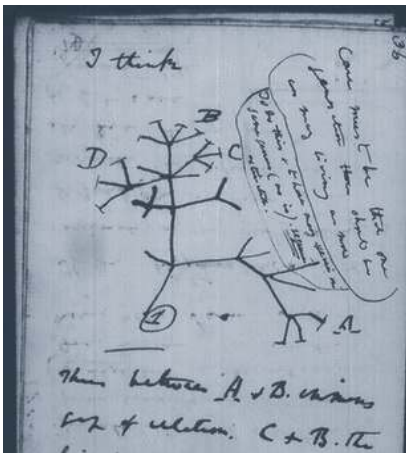 36
I think
Case must be that one
generation then should be
as many living as now
To do this & to have many species in
same genus (as is). requires
extinction
B
C
D
A
1
Thus between A & B. immens
gap of relation. C & B. the